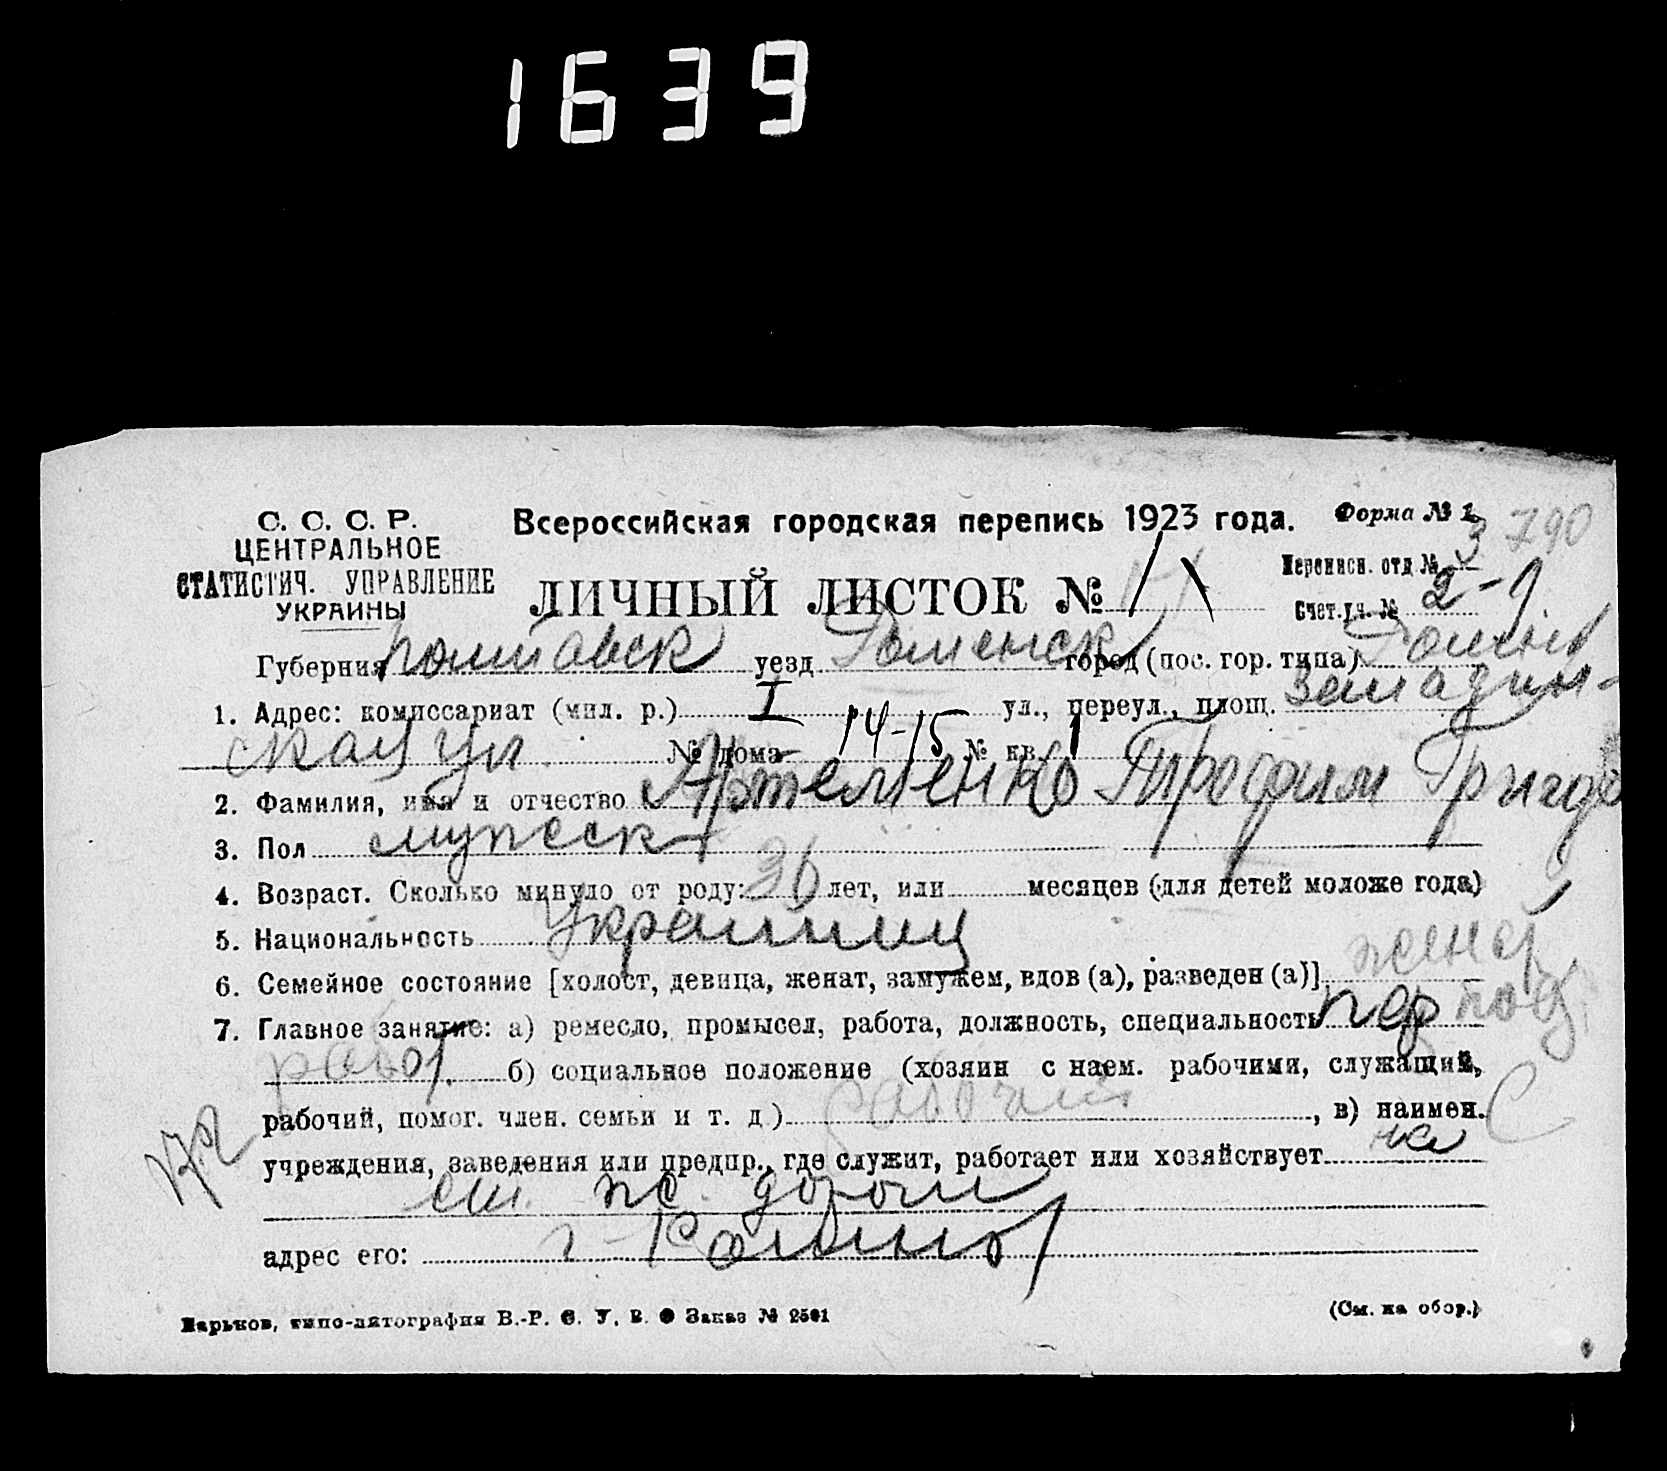 1639
С. С. С. Р.
ЦЕНТРАЛЬНОЕ
СТАТИСТИЧ. УПРАВЛЕНИЕ
УКРАИНЫ
Всероссийская городская перепись 1923 года.
Форма № 1
ЛИЧНЫЙ ЛИСТОК № 1
Переписн. отд № 3 790
Счет.уч. № 2-1
Губерния Полтавск уезд Роменск город (пос. гор. типа) Ромны
1. Адрес: комиссариат (мил. р.) I ул., переул., площ. Западин-
ская ул. № дома 14-15 № кв. 1
2. Фамилия, имя и отчество Артеменко Трофим Григор
3. Пол мужск
4. Возраст. Сколько минуло от роду: 36 лет, или месяцев (для детей моложе года)
5. Национальность Украинец
6. Семейное состояние [холост, девица, женат, замужем, вдов (а), разведен (а)] женат
7. Главное занятие: а) ремесло, промысел, работа, должность, специальность
работ. б) социальное положение (хозяин с наем. рабочими, служащий,
рабочий, помог. член. семьи и т. д.) рабочий, в) наимен.
учреждения, заведения или предпр., где служит, работает или хозяйствует на
ст. ж. дороги
адрес его: г. Ромны
Харьков, типо-литография В.-Р. С. У. В. О Заказ № 2501
(См. на обор.)